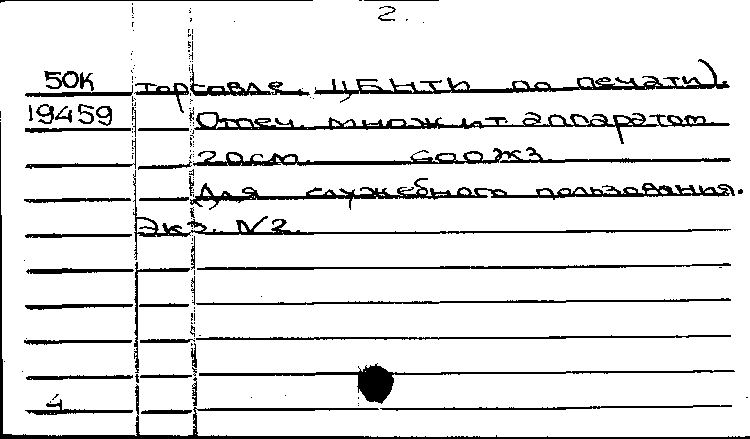 2.
50К торговле. ЦБНТИ по печати).
19459 Отпеч. множит аппаратом
20см. 600экз.
Для служебного пользования.
Экз. N2.
4